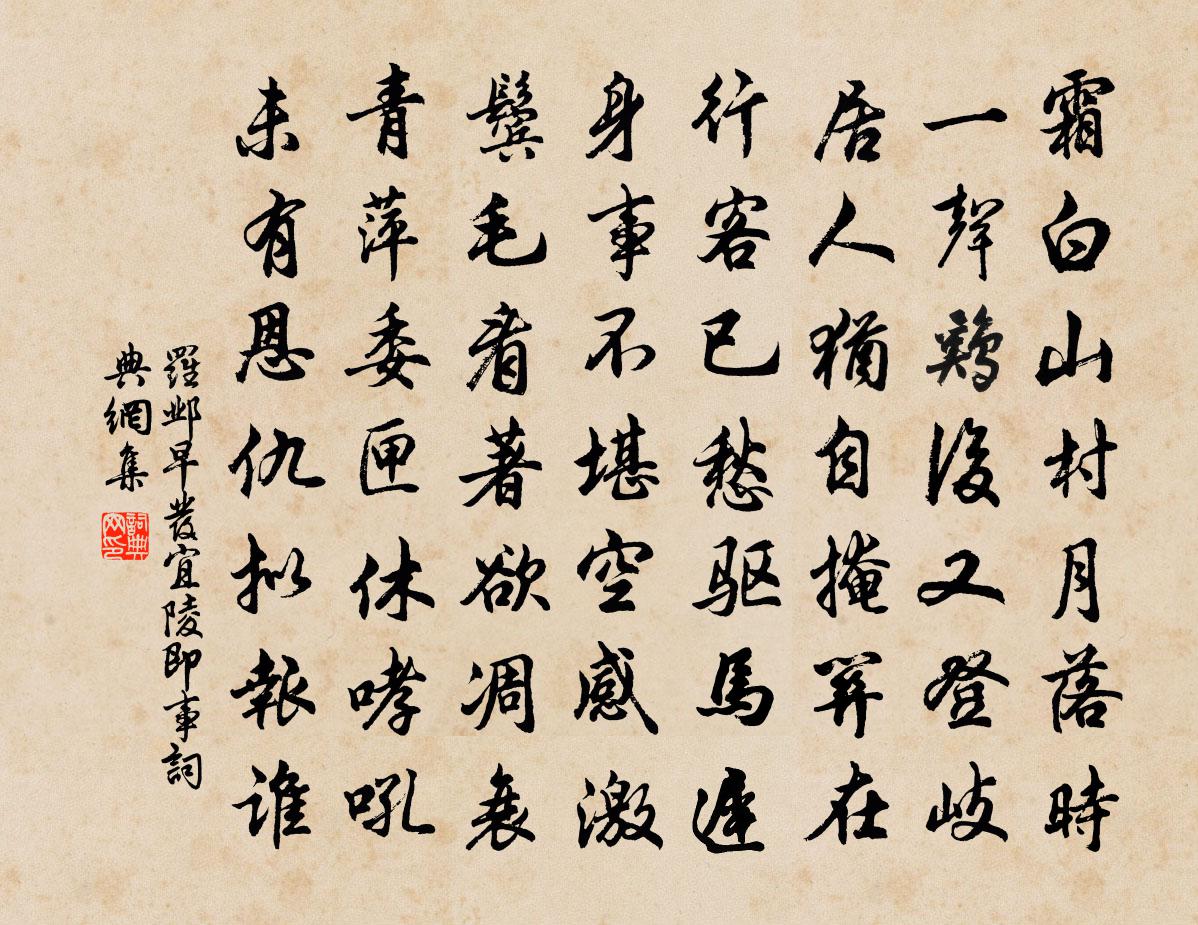 霜白山村月落時
一聲鷄後又登岐
居人猶自掩關在
行客已愁驱馬遲
身事不堪空感激
鬢毛看著欲凋衰
青萍委匣休哮吼
未有恩仇拟報誰
羅邺早發宜陵即事詞
典網集
詞典網印